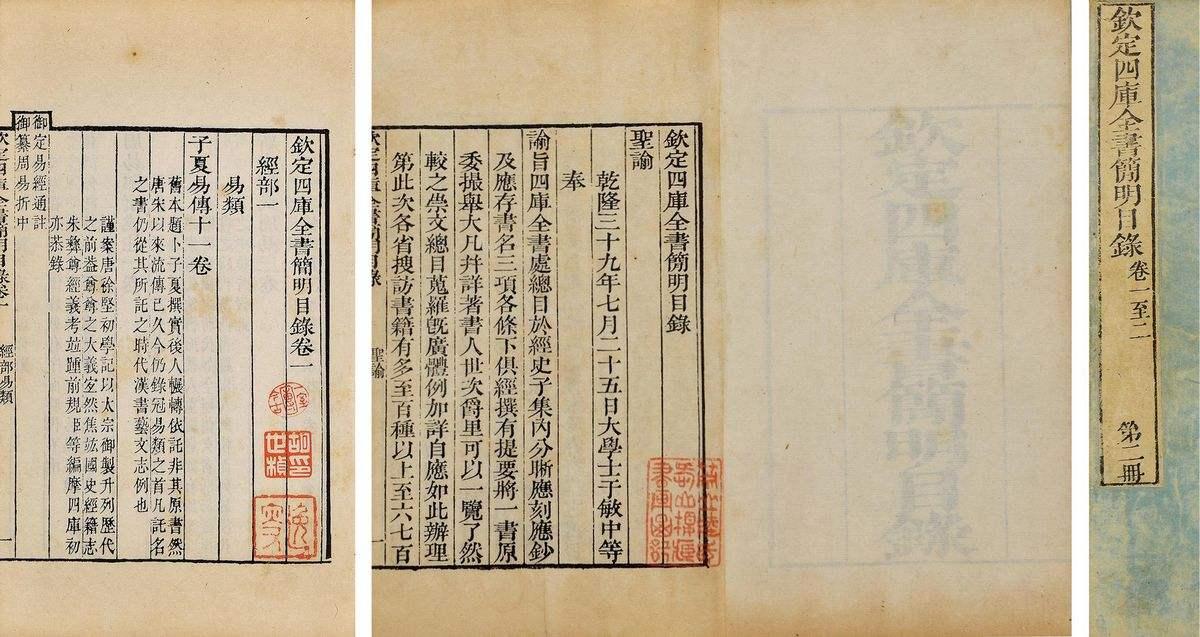 欽定四庫全書簡明目錄 卷一至二 第二冊
欽定四庫全書簡明目錄
欽定四庫全書簡明目錄
聖諭
乾隆三十九年七月二十五日大學士于敏中等
奉
諭旨四庫全書處總目於經史子集內分晰應刻應鈔
及應存書名三項各條下俱經撰有提要將一書原
委撮舉大凡幷詳著書人世次爵里可以一覽了然
較之崇文總目蒐羅旣廣體例加詳自應如此辦理
第此次各省搜訪書籍有多至百種以上至六七百
欽定四庫全書簡明目錄 聖諭 一
欽定四庫全書簡明目錄卷一
經部一
易類
子夏易傳十一卷
舊本題卜子夏撰實後人輾轉依託非其原書然
唐宋以來流傳已久今仍錄冠易類之首凡託名
之書仍從其所託之時代漢書藝文志例也
謹案唐徐堅初學記以太宗御製升列歷代
之前葢尊尊之大義宜然焦竑國史經籍志
朱彝尊經義考竝踵前規臣等編摩四庫初
亦恭錄
御定易經通註
御纂周易折中
欽定四庫全書簡明目錄卷一 經部易類 一